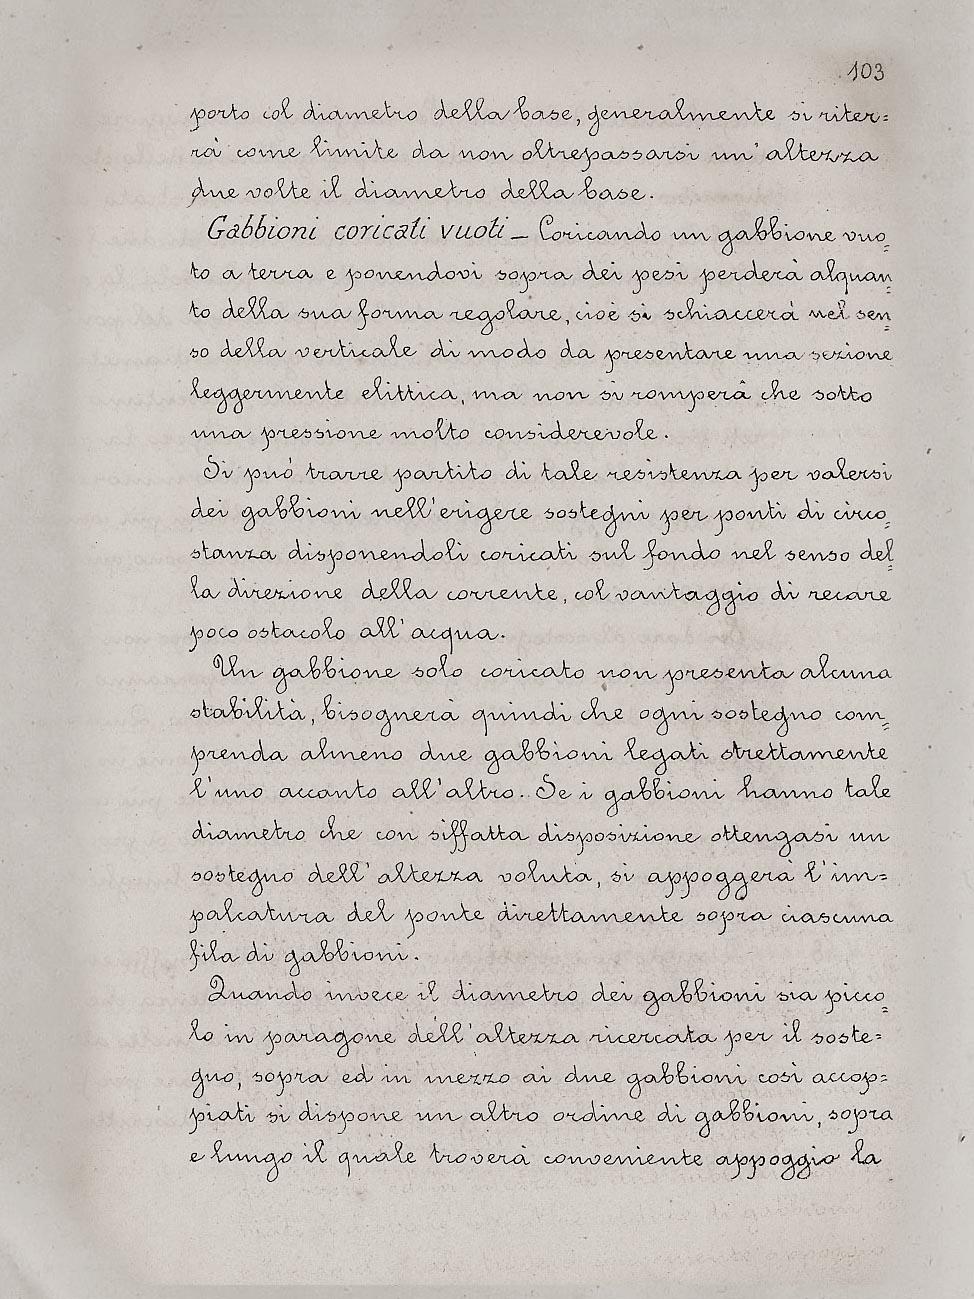 103
porto col diametro della base, generalmente si riter=
rà come limite da non oltrepassarsi un' altezza
due volte il diametro della base.
Gabbioni coricati vuoti _ Coricando un gabbione vuo=
to a terra e ponendovi sopra dei pesi perderà alquan=
to della sua forma regolare, cioè si schiaccerà nel sen=
so della verticale di modo da presentare una sezione
leggermente elittica, ma non si romperà che sotto
una pressione molto considerevole.
Si può trarre partito di tale resistenza per valersi
dei gabbioni nell'erigere sostegni per ponti di circo=
stanza disponendoli coricati sul fondo nel senso del=
la direzione della corrente, col vantaggio di recare
poco ostacolo all'acqua.
Un gabbione solo coricato non presenta alcuna
stabilità, bisognerà quindi che ogni sostegno com=
prenda almeno due gabbioni legati strettamente
l'uno accanto all'altro. Se i gabbioni hanno tale
diametro che con siffatta disposizione ottengasi un
sostegno dell' altezza voluta, si appoggerà l'im=
palcatura del ponte direttamente sopra ciascuna
fila di gabbioni.
Quando invece il diametro dei gabbioni sia picco=
lo in paragone dell'altezza ricercata per il soste=
gno, sopra ed in mezzo ai due gabbioni così accop=
piati si dispone un altro ordine di gabbioni, sopra
e lungo il quale troverà conveniente appoggio la